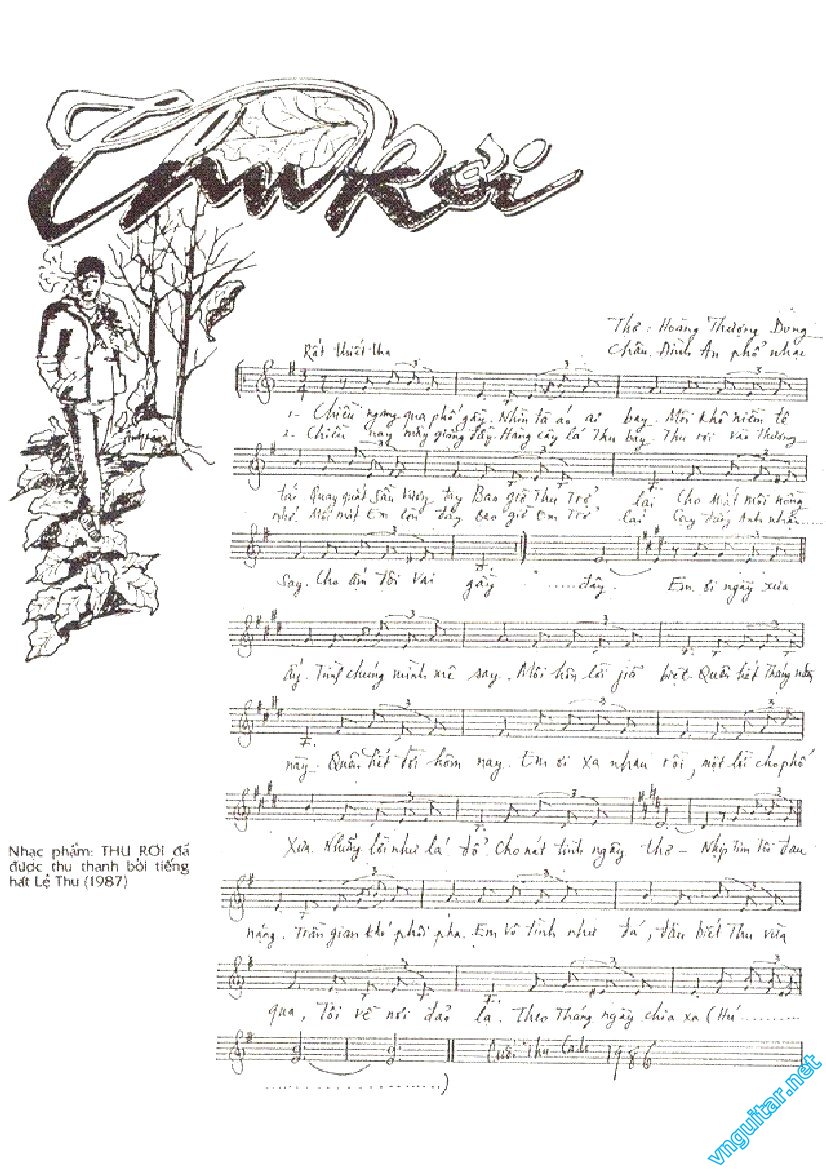 Thu Rơi
Thơ: Hoàng Thượng Dung
Rất thiết tha
Châu Đình An phổ nhạc
1- Chiều ngang qua phố gầy. Nhìn tà áo ai bay. Môi khô niềm tê
2- Chiều nay mây giăng đầy. Hàng cây lá Thu bay. Thu rơi vào thương
tái Quay quắt sầu Bao giờ Thu Trở lại Cho mắt môi nồng
nhớ Môi mắt Em còn đây. Bao giờ Em Trở lại
say. Cho ấm đôi vai gầy ......... đây. Em ơi ngày xưa
ấy. Tình chúng mình mê say. Môi hôn lời giã biệt. Quên hết tháng
này. Quên hết đời hôm nay. Em ơi xa nhau rồi, một lối cho phố
xưa. Những lối như lá đổ. Cho nát tình ngây thơ - Nhịp tim tôi đau
nặng. Trần gian khó phôi pha. Em vô tình như đá, đâu biết Thu vừa
qua, Tôi về nơi đảo lạ. Theo tháng ngày chia xa (Hư ...........
Cuối Thu 1986
................................)
Nhạc phẩm: THU RƠI đã
được thu thanh bởi tiếng
hát Lệ Thu (1987)
vnguitar.net